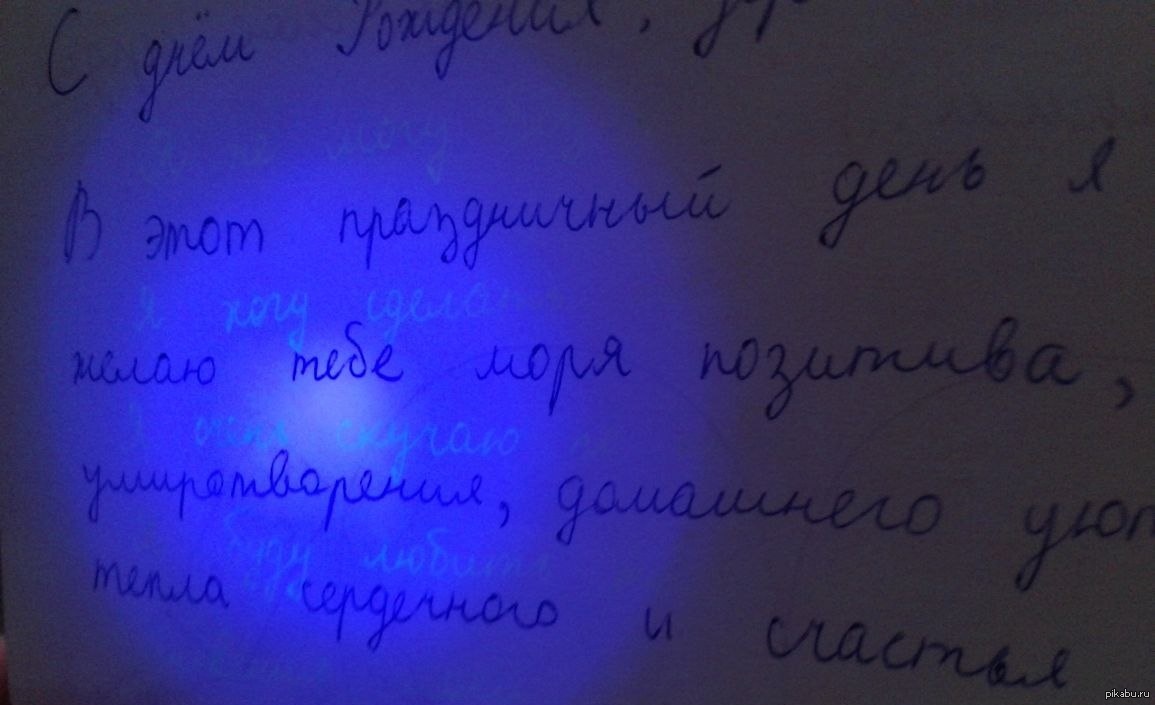 С днём Рождения,
Я не могу
В этот праздничный день я
Я хочу сделать
желаю тебе моря позитива,
Я очень скучаю
умиротворения, домашнего
буду любить
тепла сердечного и счастья
pikabu.ru